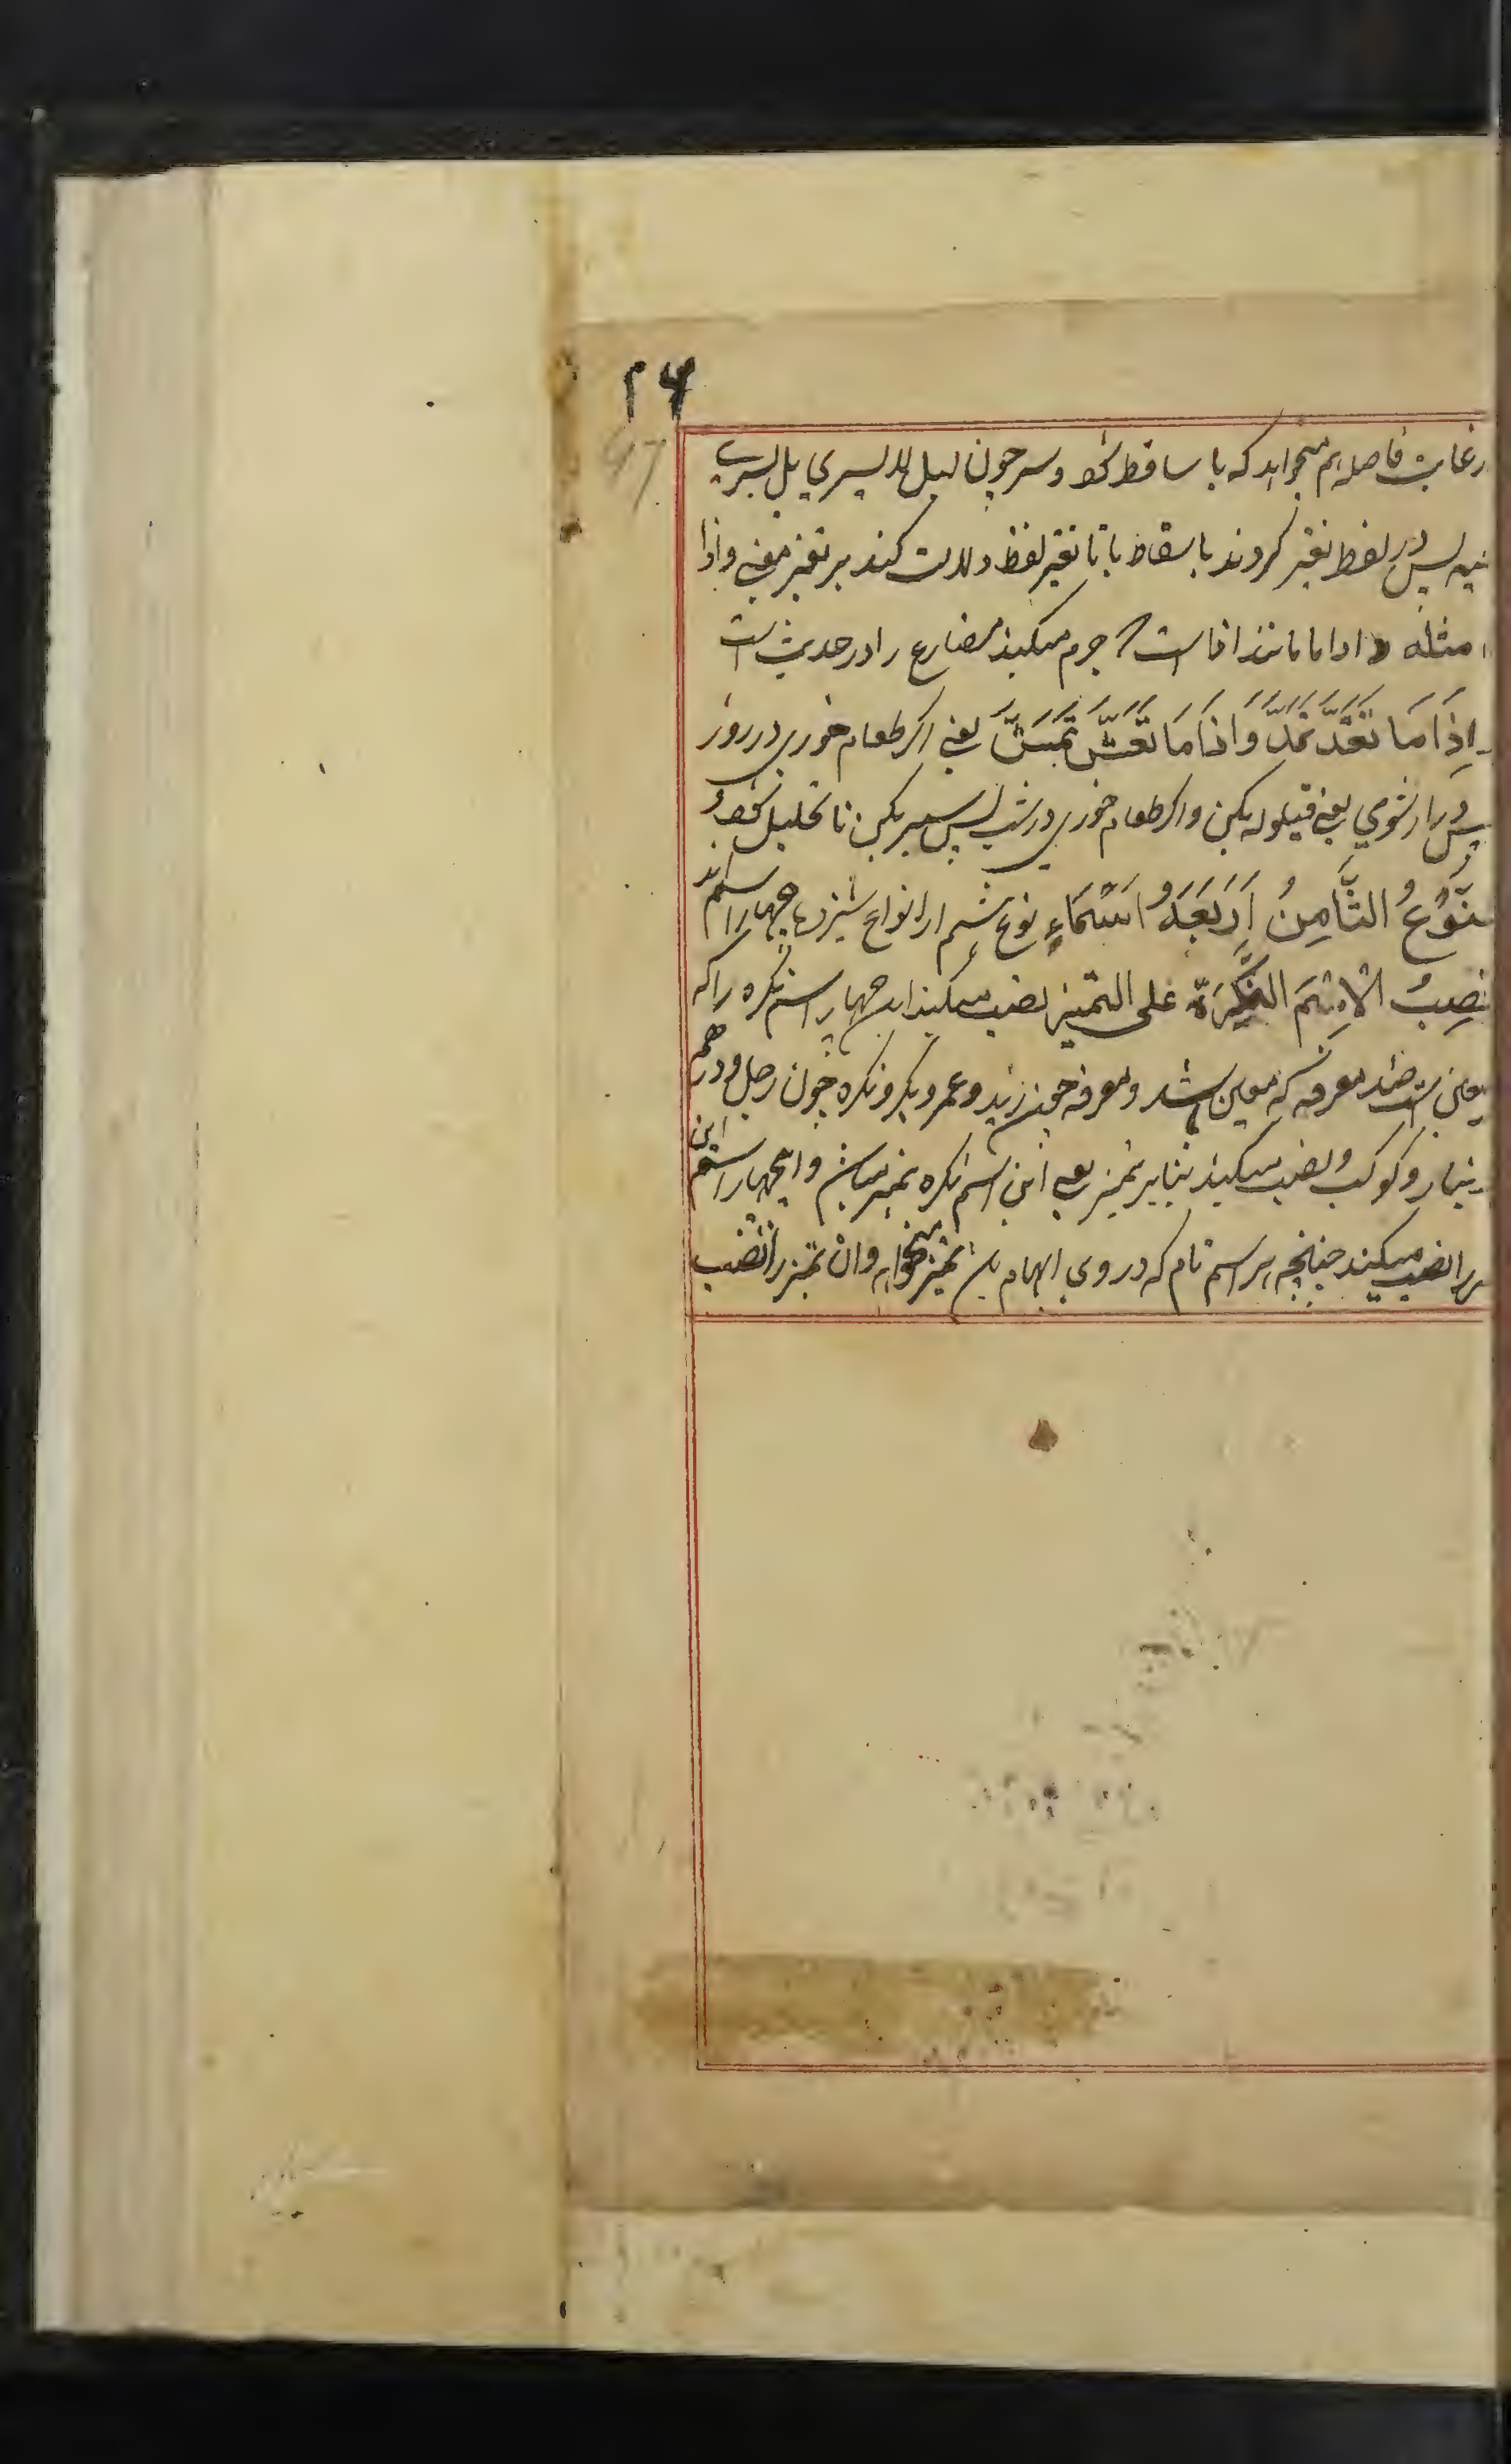 ۴۶
47
رعایت فاصله هم میخواهد که یا ساقط شود و سر چون لیل لا یسری بل یسری
پس در لفظ تغیر کردند باسقاط یا تا تغیر لفظ دلالت کند بر تغیر معنی واذا
مثله و اذاما مانند اذا است جزم میکند مضارع را در حدیث است
اِذَا مَا تَغَدَّ تَمَدَّ وَاِذَا مَا تَعَشَّ تَمَشَّ یعنی اگر طعام خوری در روز
پس دراز شوی یعنی قیلوله بکن واگر طعام خوری در شب پس سیر بکن تا تحلیل شود
نَوْعُ الثَّامِنُ اَرْبَعَةُ اَسْمَاءٍ نوع هشتم از انواع سیزده چهار اسم اند
تنصِبُ الْاِسْمَ النَّکِرَةَ علی التمیز نصب میکند این چهار اسم نکره را که
معین است ضد معرفه که معین باشد ومعرفه چون زید وعمرو بکر ونکره چون رجل ودرهم
دینار وکوکب ونصب میکند بنابر تمیز یعنی این اسم نکره تمیز میباشد و این چهار اسم این
را نصب میکند چنانچه هر اسم تام که در وی ابهام باشد تمیز میخواهد وان تمیز را نصب